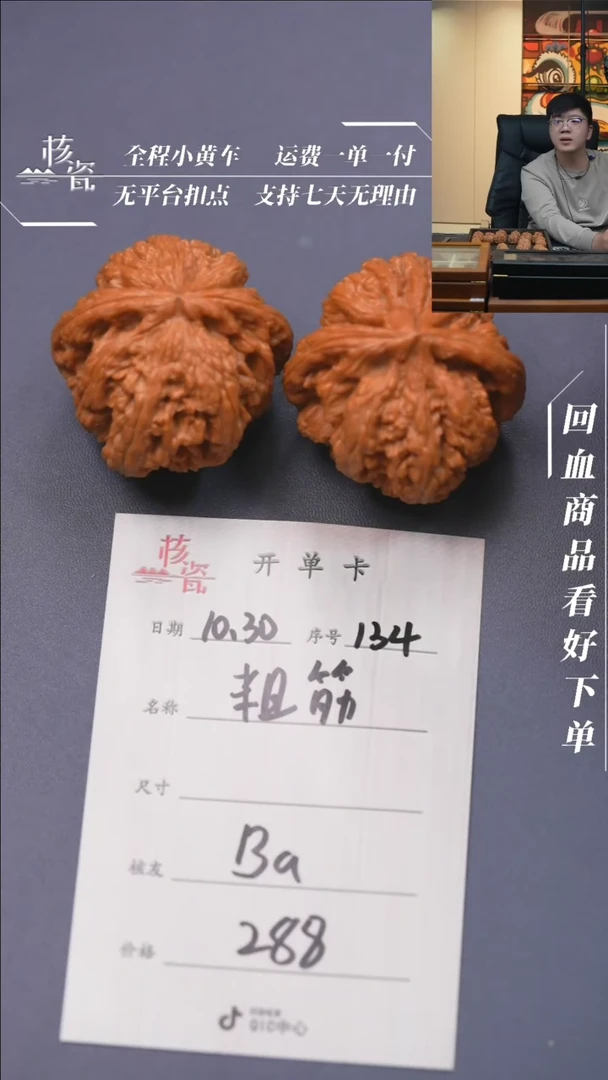 核瓷
全程小黄车 运费一单一付
无平台扣点 支持七天无理由
回血商品看好下单
核瓷 开单卡
日期 10.30 序号 134
名称 粗筋
尺寸
核友 Ba
价格 288
QIC中心